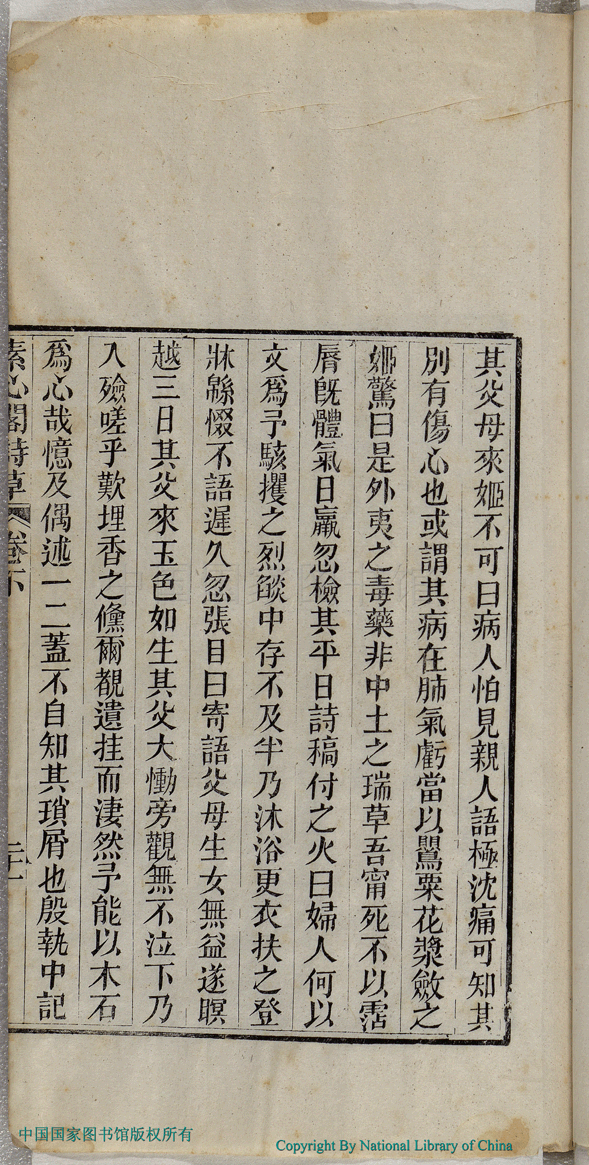 其父母來姬不可曰病人怕見親人語極沈痛可知其
別有傷心也或謂其病在肺氣虧當以鸎粟花漿斂之
姬驚曰是外夷之毒藥非中土之瑞草吾甯死不以霑
脣旣體氣日羸忽檢其平日詩稿付之火曰婦人何以
文爲予駭攫之烈燄中存不及半乃沐浴更衣扶之登
牀緜惙不語遲久忽張目曰寄語父母生女無益遂瞑
越三日其父來玉色如生其父大慟旁觀無不泣下乃
入殮嗟乎歎埋香之儵爾覩遺挂而淒然予能以木石
爲心哉憶及偶述一二蓋不自知其瑣屑也殷執中記
素心閣詩草 卷下 二十一
中国国家图书馆版权所有
Copyright By National Library of China